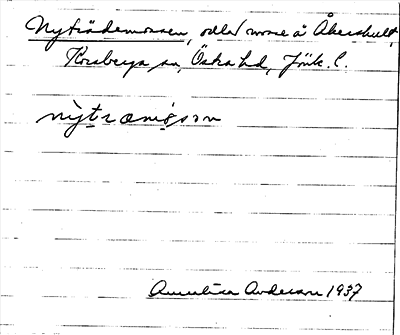 Nyträdemossen, odlad mosse å Åkershult,
Korsberga sn, Östra hd, Jönk. l.
nỳtræmȯsən
Annelisa Anderson 1937